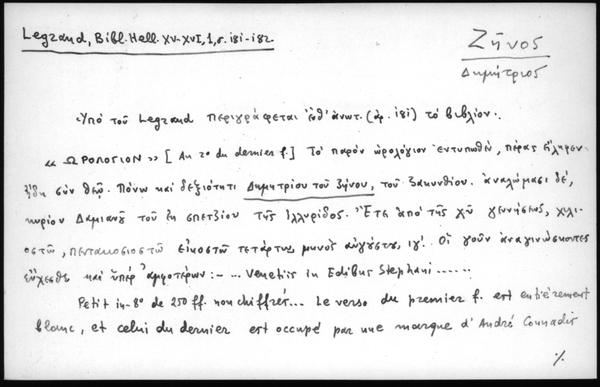 Legrand, Bibl. Hell. XV-XVI, 1, σ. 181-182.
Ζῆνος
Δημήτριος
Ὑπὸ τοῦ Legrand περιγράφεται ἔνθ' ἀνωτ. (ἀρ. 181) τὸ βιβλίον:
« ΩΡΟΛΟΓΙΟΝ » [Au 2o du dernier f.] Τὸ παρὸν ὡρολόγιον ἐντυπωθὲν, πέρας εἴληφεν
ἤδη σὺν θεῷ. Πόνῳ καὶ δεξιότητι Δημητρίου τοῦ Ζήνου, τοῦ Ζακυνθίου. ἀναλώμασι δέ,
κυρίου Δαμιανοῦ τοῦ ἐκ σπετζίου τῆς Ἰλλυρίδος. Ἔτει ἀπὸ τῆς χῦ γεννήσεως, χιλι-
οστῶ, πεντακοσιοστῶ εἰκοστῶ τετάρτῳ, μηνὸς αὐγούστου, ιγ'. Οἱ γοῦν ἀναγινώσκοντες
εὔχεσθε καὶ ὑπὲρ ἀμφοτέρων :~ ... Venetiis in Edibus Stephani ......
Petit in-8o de 250 ff. non chiffrés... Le verso du premier f. est entièrement
blanc, et celui du dernier est occupé par une marque d'André Counadis
%